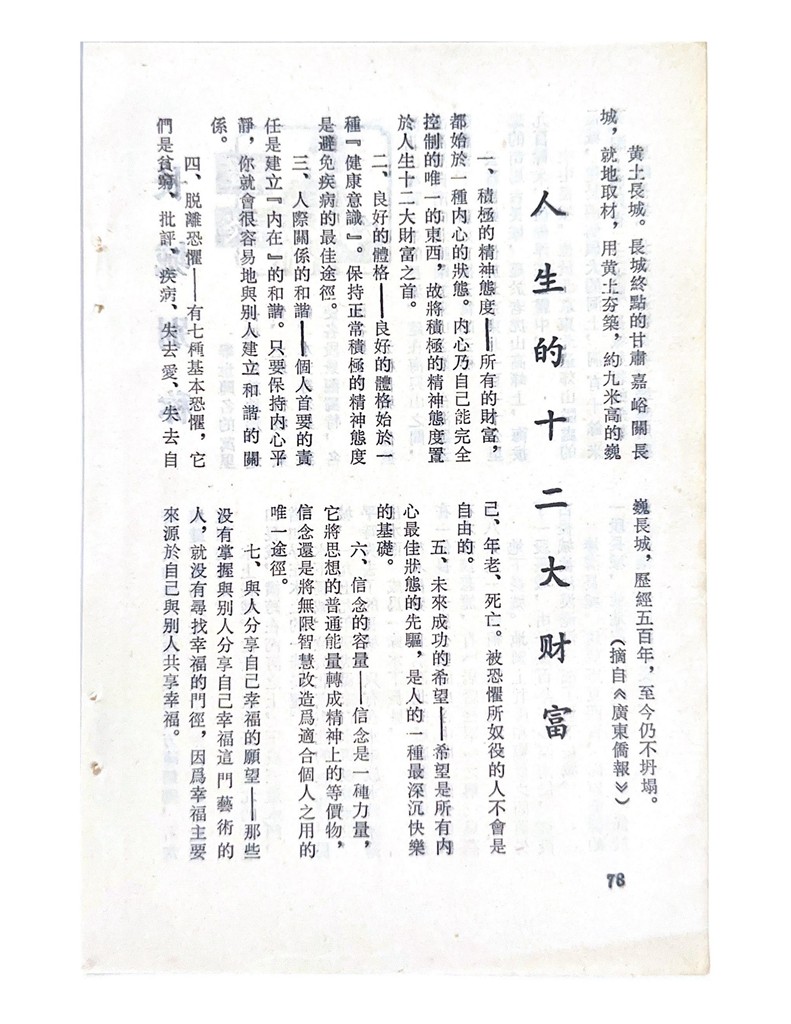 黄土長城。長城終點的甘肅嘉峪關長
城，就地取材，用黄土夯築，約九米高的巍
巍長城，歷經五百年，至今仍不坍塌。
（摘自《廣東僑報》）
人生的十二大财富
一、積極的精神態度——所有的財富，
都始於一種内心的狀態。内心乃自己能完全
控制的唯一的東西，故將積極的精神態度置
於人生十二大財富之首。
二、良好的體格——良好的體格始於一
種『健康意識』。保持正常積極的精神態度
是避免疾病的最佳途徑。
三、人際關係的和諧——個人首要的責
任是建立『内在』的和諧。只要保持内心平
靜，你就會很容易地與别人建立和諧的關
係。
四、脱離恐懼——有七種基本恐懼，它
們是貧窮、批評、疾病、失去愛、失去自
己、年老、死亡。被恐懼所奴役的人不會是
自由的。
五、未來成功的希望——希望是所有内
心最佳狀態的先驅，是人的一種最深沉快樂
的基礎。
六、信念的容量——信念是一種力量，
它將思想的普通能量轉成精神上的等價物，
信念還是將無限智慧改造爲適合個人之用的
唯一途徑。
七、與人分享自己幸福的願望——那些
没有掌握與别人分享自己幸福這門藝術的
人，就没有尋找幸福的門徑，因爲幸福主要
來源於自己與别人共享幸福。
76